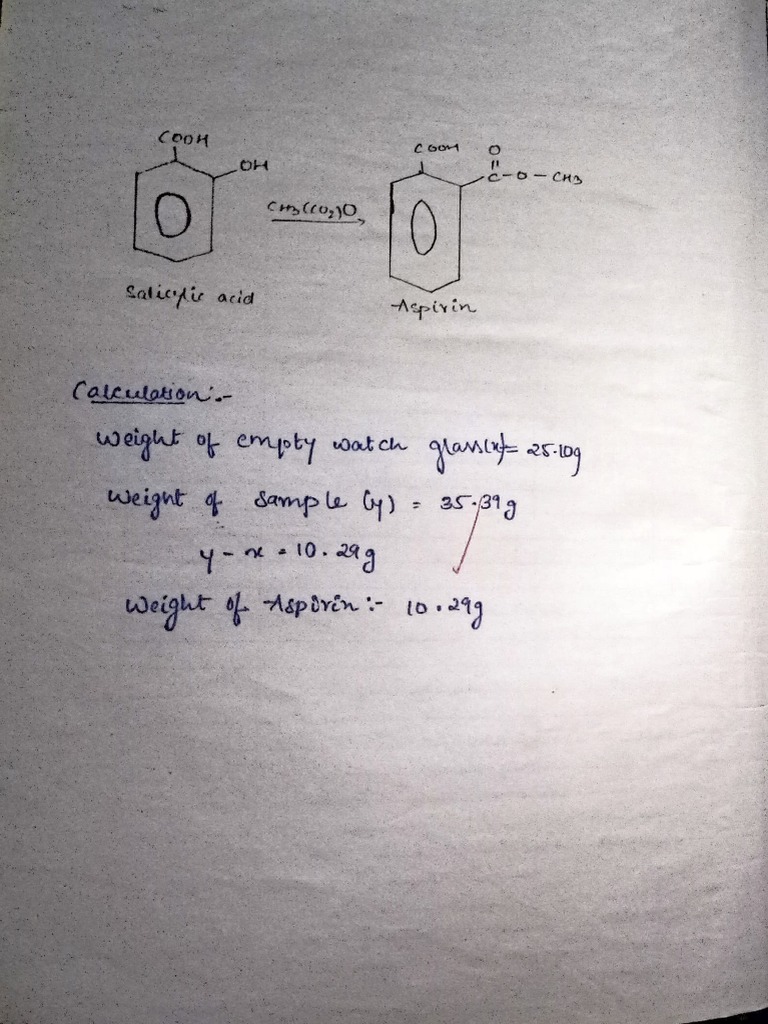 COOH
OH
CH3(CO2)O
Salicylic acid
COOH
O
C-O-CH3
Aspirin
Calculation:-
Weight of empty watch glass(x)= 25.10g
Weight of sample (y) = 35.39g
y-x = 10.29g
Weight of Aspirin:- 10.29g